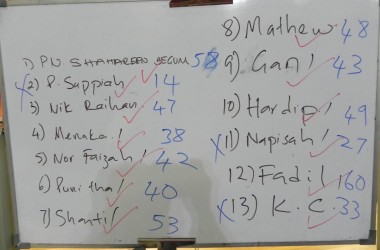 1) PN SHAHAREEN BEGUM 58
x 2) P. Suppiah 14
3) Nik Raihan 47
4) Menaka 38
5) Nor Faizah 42
6) Punitha 40
7) Shanti 53
8) Mathew 48
9) Gan 43
10) Hardip 49
x 11) Napisah 27
12) Fadil 160
x 13) K. C. 33